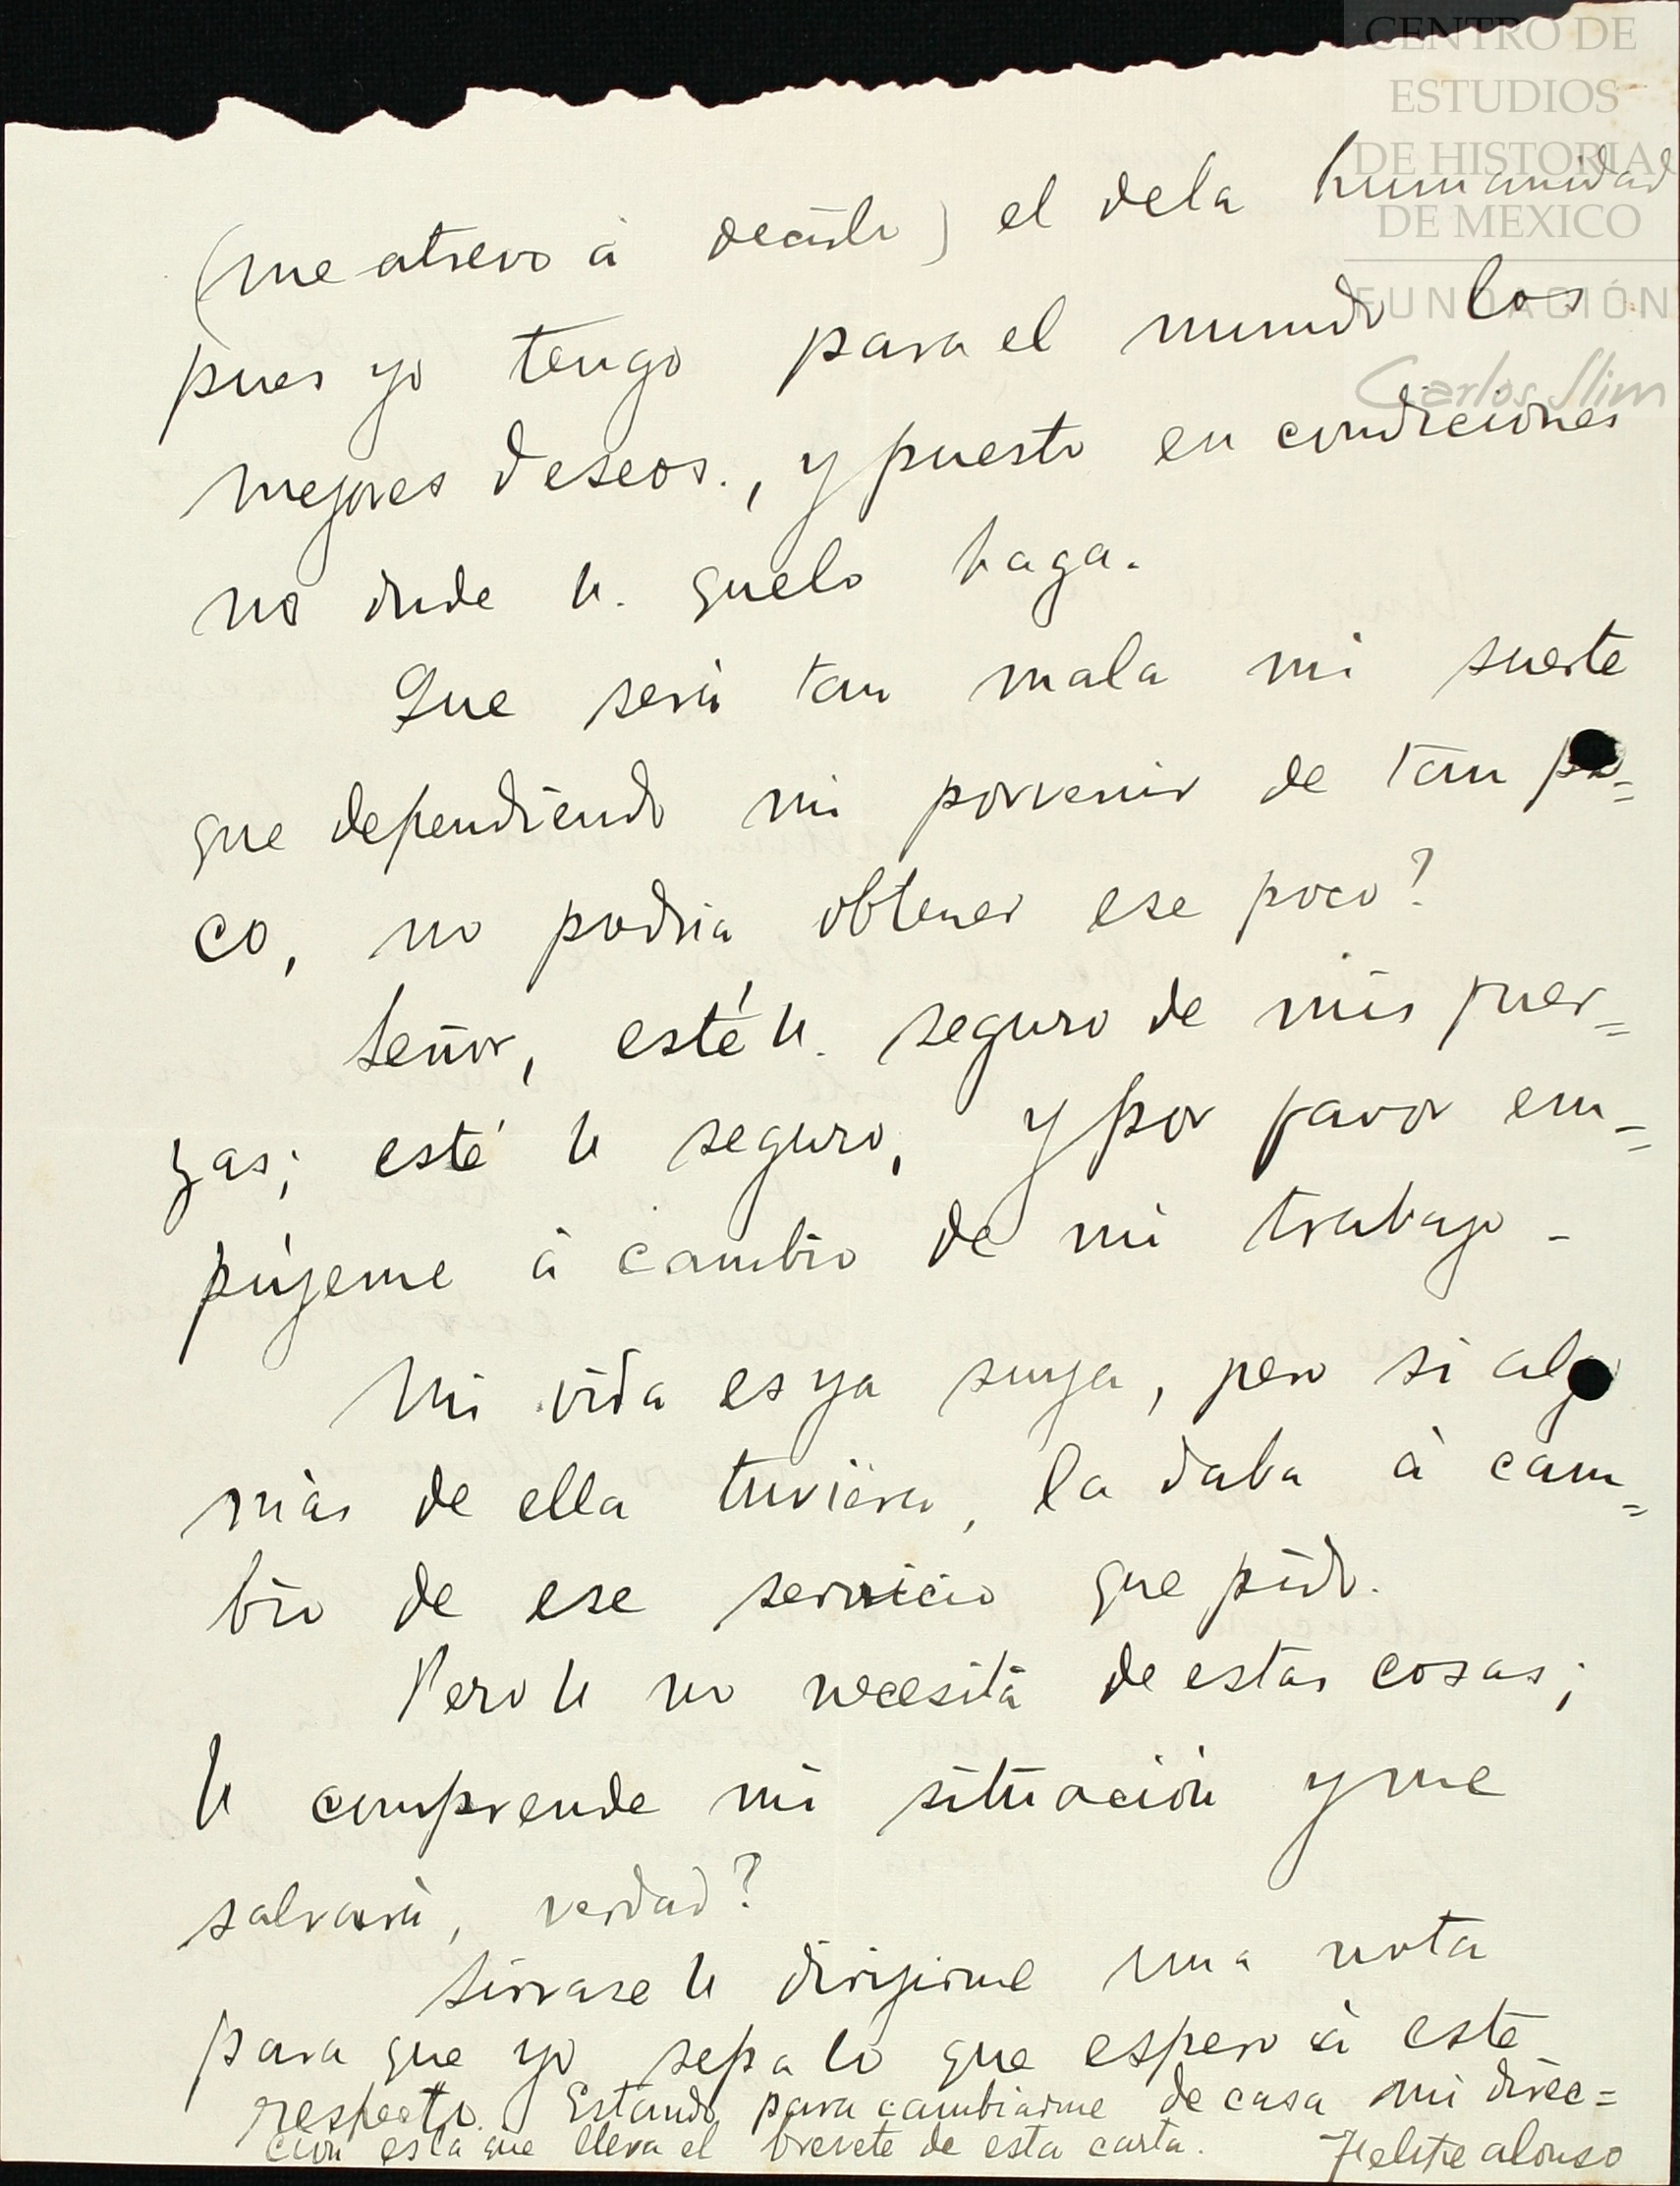 CENTRO DE
ESTUDIOS
DE HISTORIA
DE MEXICO
FUNDACIÓN
Carlos Slim
(me atrevo á decirlo) el dela humanidad
pues yo tengo para el mundo los
mejores deseos., y puesto en condiciones
no dude U. quelo haga.
Que será tan mala mi suerte
que dependiendo mi porvenir de tan po=
co, no podria obtener ese poco?
Señor, esté U. seguro de mis fuer=
zas; esté U seguro, y por favor em=
pújeme á cambio de mi trabajo -
Mi vida es ya suya, pero si algo
más de ella tuviera, la daba á cam=
bio de ese servicio que pido.
Pero U no necesita de estas cosas;
U comprende mi situación y me
salvará, verdad?
Sirvase U dirijirme una nota
para que yo sepa lo que espero á este
respecto. Estando para cambiarme de casa mi direc=
ción es la que lleva el brevete de esta carta. Felipe Alonso